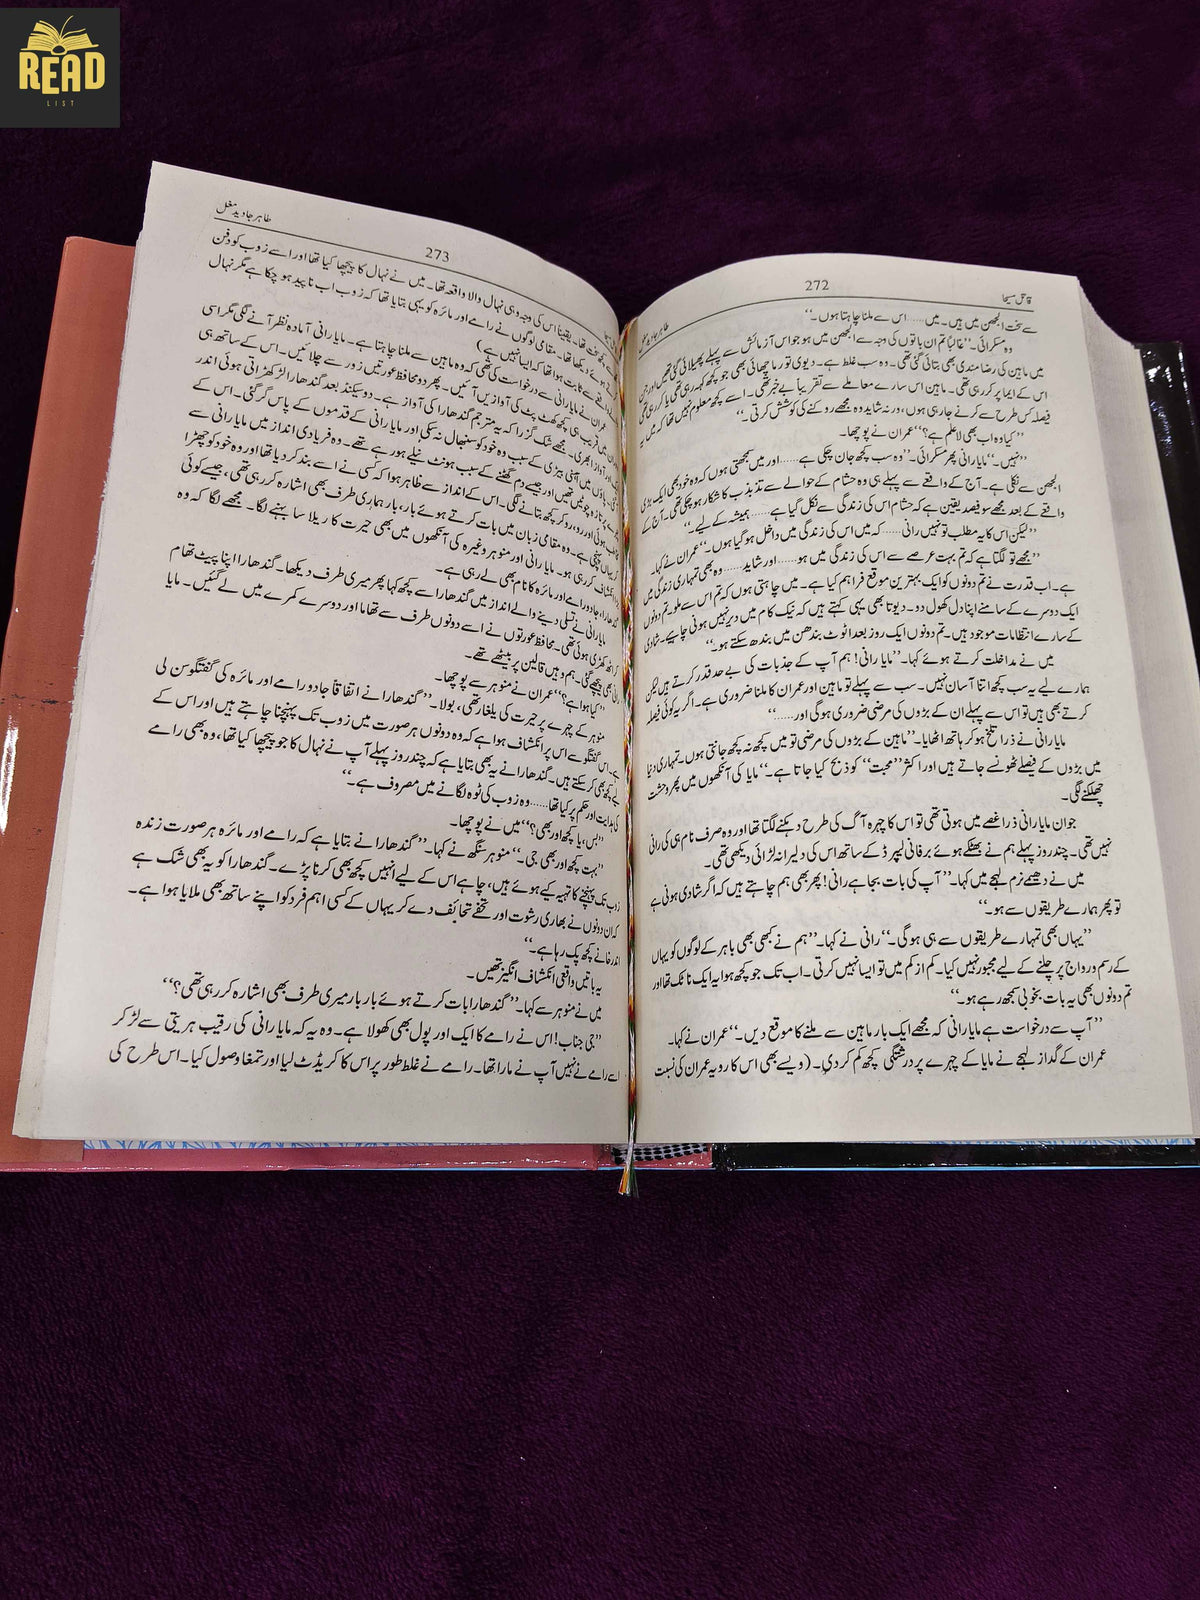 READ
LIST
قاتل مسیحا
272
طاہر جاوید مغل
سے سخت الجھن میں ہیں۔ میں...... اس سے ملنا چاہتا ہوں۔“
وہ مسکرائی۔ ”غالباً تم ان باتوں کی وجہ سے الجھن میں ہو جو اس آزمائش سے پہلے پھیلائی گئی تھیں اور جن
میں ماہین کی رضا مندی بھی بتائی گئی تھی۔ وہ سب غلط ہے۔ دیوی تورما چھائی بھی جو کچھ کہہ رہی تھی یا کر رہی تھی
اس کے ایما پر کر رہی تھی۔ ماہین اس سارے معاملے سے تقریباً بے خبر تھی۔ اسے کچھ معلوم نہیں تھا کہ میں یہ
فیصلہ کس طرح سے کرنے جا رہی ہوں، ورنہ شاید وہ مجھے روکنے کی کوشش کرتی۔“
”کیا وہ اب بھی لاعلم ہے؟“ عمران نے پوچھا۔
”نہیں۔“ مایا رانی پھر مسکرائی۔ ”وہ سب کچھ جان چکی ہے...... اور میں سمجھتی ہوں کہ وہ خود بھی ایک بڑی
الجھن سے نکلی ہے۔ آج کے واقعے سے پہلے ہی وہ حشام کے حوالے سے تذبذب کا شکار ہو چکی تھی۔ آج کے
واقعے کے بعد مجھے سو فیصد یقین ہے کہ حشام اس کی زندگی سے نکل گیا ہے...... ہمیشہ کے لیے۔“
”لیکن اس کا یہ مطلب تو نہیں رانی...... کہ میں اس کی زندگی میں داخل ہو گیا ہوں۔“ عمران نے کہا۔
”مجھے تو لگتا ہے کہ تم بہت عرصے سے اس کی زندگی میں ہو...... اور شاید...... وہ بھی تمہاری زندگی میں
ہے۔ اب قدرت نے تم دونوں کو ایک بہترین موقع فراہم کیا ہے۔ میں چاہتی ہوں کہ تم اس سے ملو۔ تم دونوں
ایک دوسرے کے سامنے اپنا دل کھول دو۔ دیوتا بھی یہی کہتے ہیں کہ نیک کام میں دیر نہیں ہونی چاہیے۔ شادی
کے سارے انتظامات موجود ہیں۔ تم دونوں ایک روز بعد اٹوٹ بندھن میں بندھ سکتے ہو۔“
میں نے مداخلت کرتے ہوئے کہا۔ ”مایا رانی! ہم آپ کے جذبات کی بے حد قدر کرتے ہیں لیکن
ہمارے لیے یہ سب کچھ اتنا آسان نہیں۔ سب سے پہلے تو ماہین اور عمران کا ملنا ضروری ہے۔ اگر یہ کوئی فیصلہ
کرتے بھی ہیں تو اس سے پہلے ان کے بڑوں کی مرضی ضروری ہو گی اور......“
مایا رانی نے ذرا تلخ ہو کر ہاتھ اٹھایا۔ ”ماہین کے بڑوں کی مرضی تو میں کچھ نہ کچھ جانتی ہوں۔ تمہاری دنیا
میں بڑوں کے فیصلے ٹھونسے جاتے ہیں اور اکثر ”محبت“ کو ذبح کیا جاتا ہے۔“ مایا کی آنکھوں میں پھر وحشت
چھلکنے لگی۔
جوان مایا رانی ذرا غصے میں ہوتی تھی تو اس کا چہرہ آگ کی طرح دہکنے لگتا تھا اور وہ صرف نام ہی کی رانی
نہیں تھی۔ چند روز پہلے ہم نے بھٹکے ہوئے برفانی لیپرڈ کے ساتھ اس کی دلیرانہ لڑائی دیکھی تھی۔
میں نے دھیمے نرم لہجے میں کہا۔ ”آپ کی بات بجا ہے رانی! پھر بھی ہم چاہتے ہیں کہ اگر شادی ہونی ہے
تو پھر ہمارے طریقوں سے ہو۔“
”یہاں بھی تمہارے طریقوں سے ہی ہو گی۔“ رانی نے کہا۔ ”ہم نے کبھی بھی باہر کے لوگوں کو یہاں
کے رسم و رواج پر چلنے کے لیے مجبور نہیں کیا۔ کم از کم میں تو ایسا نہیں کرتی۔ اب تک جو کچھ ہوا یہ ایک ناٹک تھا اور
تم دونوں بھی یہ بات بخوبی سمجھ رہے ہو۔“
”آپ سے درخواست ہے مایا رانی کہ مجھے ایک بار ماہین سے ملنے کا موقع دیں۔“ عمران نے کہا۔
عمران کے گداز لہجے نے مایا کے چہرے پر درشتگی کچھ کم کر دی۔ (ویسے بھی اس کا رویہ عمران کی نسبت
273
طاہر جاوید مغل
سے کچھ سخت تھا۔ یقیناً اس کی وجہ وہی نہال والا واقعہ تھا۔ میں نے نہال کا پیچھا کیا تھا اور اسے زوب کو دفن
کرتے ہوئے دیکھا تھا۔ مقامی لوگوں نے رامے اور مائرہ کو یہی بتایا تھا کہ زوب اب ناپید ہو چکا ہے مگر نہال
والے واقعے سے ثابت ہوا تھا کہ ایسا نہیں ہے)
عمران نے مایا رانی سے درخواست کی تھی کہ وہ ماہین سے ملنا چاہتا ہے۔ مایا رانی آمادہ نظر آنے لگی مگر اسی
قریب ہی کچھ کھٹ پٹ کی آوازیں آئیں۔ پھر دو محافظ عورتیں زور سے چلائیں۔ اس کے ساتھ ہی
آواز ابھری۔ مجھے شک گزرا کہ یہ مترجم گندھارا کی آواز ہے۔ دو سیکنڈ بعد گندھارا لڑکھڑاتی ہوئی اندر
پاؤں میں آہنی بیڑی کے سبب وہ خود کو سنبھال نہ سکی اور مایا رانی کے قدموں کے پاس گر گئی۔ اس کے
تازہ چوٹیں تھیں اور جیسے دم گھٹنے کے سبب ہونٹ نیلے ہو رہے تھے۔ وہ فریادی انداز میں مایا رانی سے
ہوئی اور رو رو کر کچھ بتانے لگی۔ اس کے انداز سے ظاہر ہوا کہ کسی نے اسے بند کر دیا تھا اور وہ خود کو چھڑا
کر یہاں پہنچی ہے۔ وہ مقامی زبان میں بات کرتے ہوئے بار، بار ہماری طرف بھی اشارہ کر رہی تھی، جیسے کوئی
انکشاف کر رہی ہو۔ مایا رانی اور منوہر وغیرہ کی آنکھوں میں بھی حیرت کا ریلا سا بہنے لگا۔ مجھے لگا کہ وہ
گندھارا جادو رامے اور مائرہ کا نام بھی لے رہی ہے۔
مایا رانی نے تسلی دینے والے انداز میں گندھارا سے کچھ کہا پھر میری طرف دیکھا۔ گندھارا اپنا پیٹ تھام
کر اٹھ کھڑی ہوئی تھی۔ محافظ عورتوں نے اسے دونوں طرف سے تھاما اور دوسرے کمرے میں لے گئیں۔ مایا
رانی بھی پیچھے گئی۔ ہم وہیں قالین پر بیٹھے تھے۔
”کیا ہوا ہے؟“ عمران نے منوہر سے پوچھا۔
منوہر کے چہرے پر حیرت کی یلغار تھی، بولا۔ ”گندھارا نے اتفاقاً جادو رامے اور مائرہ کی گفتگو سن لی
ہے۔ اس گفتگو سے اس پر انکشاف ہوا ہے کہ وہ دونوں ہر صورت میں زوب تک پہنچنا چاہتے ہیں اور اس کے
لیے کچھ بھی کر سکتے ہیں۔ گندھارا نے یہ بھی بتایا ہے کہ چند روز پہلے آپ نے نہال کا جو پیچھا کیا تھا، وہ بھی رامے
کی ہدایت اور حکم پر کیا تھا...... وہ زوب کی ٹوہ لگانے میں مصروف ہے۔“
”بس، یا کچھ اور بھی؟“ میں نے پوچھا۔
”بہت کچھ اور بھی جی۔“ منوہر سنگھ نے کہا۔ ”گندھارا نے بتایا ہے کہ رامے اور مائرہ ہر صورت زندہ
زوب تک پہنچنے کا تہیہ کیے ہوئے ہیں، چاہے اس کے لیے انہیں کچھ بھی کرنا پڑے۔ گندھارا کو یہ بھی شک ہے
کہ ان دونوں نے بھاری رشوت اور تحفے تحائف دے کر یہاں کے کسی اہم فرد کو اپنے ساتھ بھی ملایا ہوا ہے۔
اندر خانے کچھ پک رہا ہے۔“
یہ باتیں واقعی انکشاف انگیز تھیں۔
میں نے منوہر سے کہا۔ ”گندھارا بات کرتے ہوئے بار بار میری طرف بھی اشارہ کر رہی تھی؟“
”جی جناب! اس نے رامے کا ایک اور پول بھی کھولا ہے۔ وہ یہ کہ مایا رانی کی رقیب ہریتی سے لڑ کر
اسے رامے نے نہیں آپ نے مارا تھا۔ رامے نے غلط طور پر اس کا کریڈٹ لیا اور تمغا وصول کیا۔ اس طرح کی